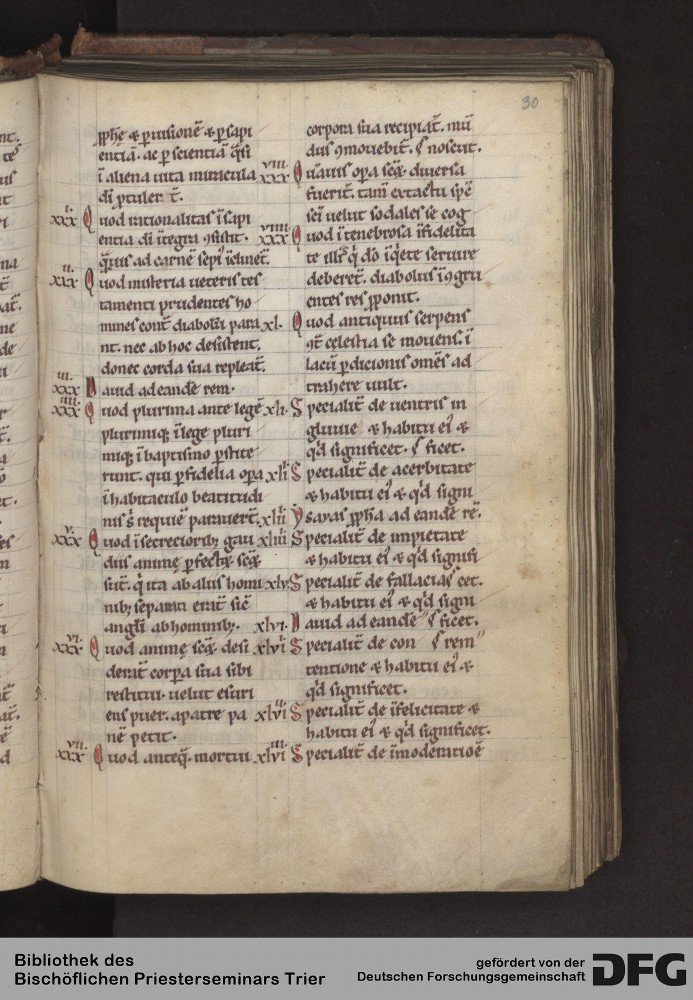 30
ꝓphe ⁊ ꝑ uisionē ⁊ ꝑ sapi
entiā. ac ꝑ scientiā q̄si
ī aliena uita miracula
di ꝓtuler̄ t̄.
xxxi. Quod rationalitas ī sapi
entia di īt̄egra ꝯsistit.
ad carnē
xxxii. Quod misteria ueteris tes
tamenti prudentes ho
mines cont̄ diabolū para
nt. nec ab hoc desistent.
donec corda sua repleat̄.
xxxiii. Dauid ad eandē rem.
xxxiiii. Quod plurima ante legē
plurimiq; ī lege pluri
miq; ī baptismo ꝑstite
runt. qui ꝑ fidelia oꝑa
ī habitaculo beatitudi
nis s̄ requiē parauert̄.
xxxv. Quod ī secretiorib; gau
diis anime ꝑfectoꝝ scōꝝ
sūt. q̄ ita ab aliis homi
nib; separati erūt sic̄
angl̄i ab hominib;.
xxxvi. Quod anime scōꝝ desi
derāt corꝑa sua sibi
restitui. uelut esuri
ens puer. a patre pa
nē petit.
xxxvii. Quod anteq̄. mortui
corpora sua recipiāt. mū
dus ꝯmouebit̄. noscūt.
xxxviii. Quāuis oꝑa scōꝝ diuersa
fuerīt. tam̄ ex tactu spē
sc̄i uelut sodales se cog
xxxviiii. Quod ī tenebrosa īfidelita
te ill'
deberet. diabolus īꝯgru
entes res ꝓponit.
xl. Quod antiquus serpens
ꝯt̄ celestia se mouens. ī
lacū ꝑdicionis om̄es ad
trahere uult.
xli. Specialit̄ de uentris in
gluuie ⁊ habitu ei' ⁊
qd̄ significet. ficet.
xlii. Specialit̄ de acerbitate
⁊ habitu ei' ⁊ qd̄ signi
xliii. Ysayas ꝓpha ad eandē rē.
xliiii. Specialit̄ de impietate
⁊ habitu ei' ⁊ qd̄ signifi
xlv. Specialit̄ de fallacia cet.
⁊ habitu ei' ⁊ qd̄ signi
xlvi. Dauid ad eandē ficet.
xlvii. Specialit̄ de con rem
tentione ⁊ habitu ei' ⁊
qd̄ significet.
xlviii. Specialit̄ de īfelicitate ⁊
habitu ei' ⁊ qd̄ significet.
xlviiii. Specialit̄ de īmoderatiōe
Bibliothek des
Bischöflichen Priesterseminars Trier
gefördert von der
Deutschen Forschungsgemeinschaft
DFG